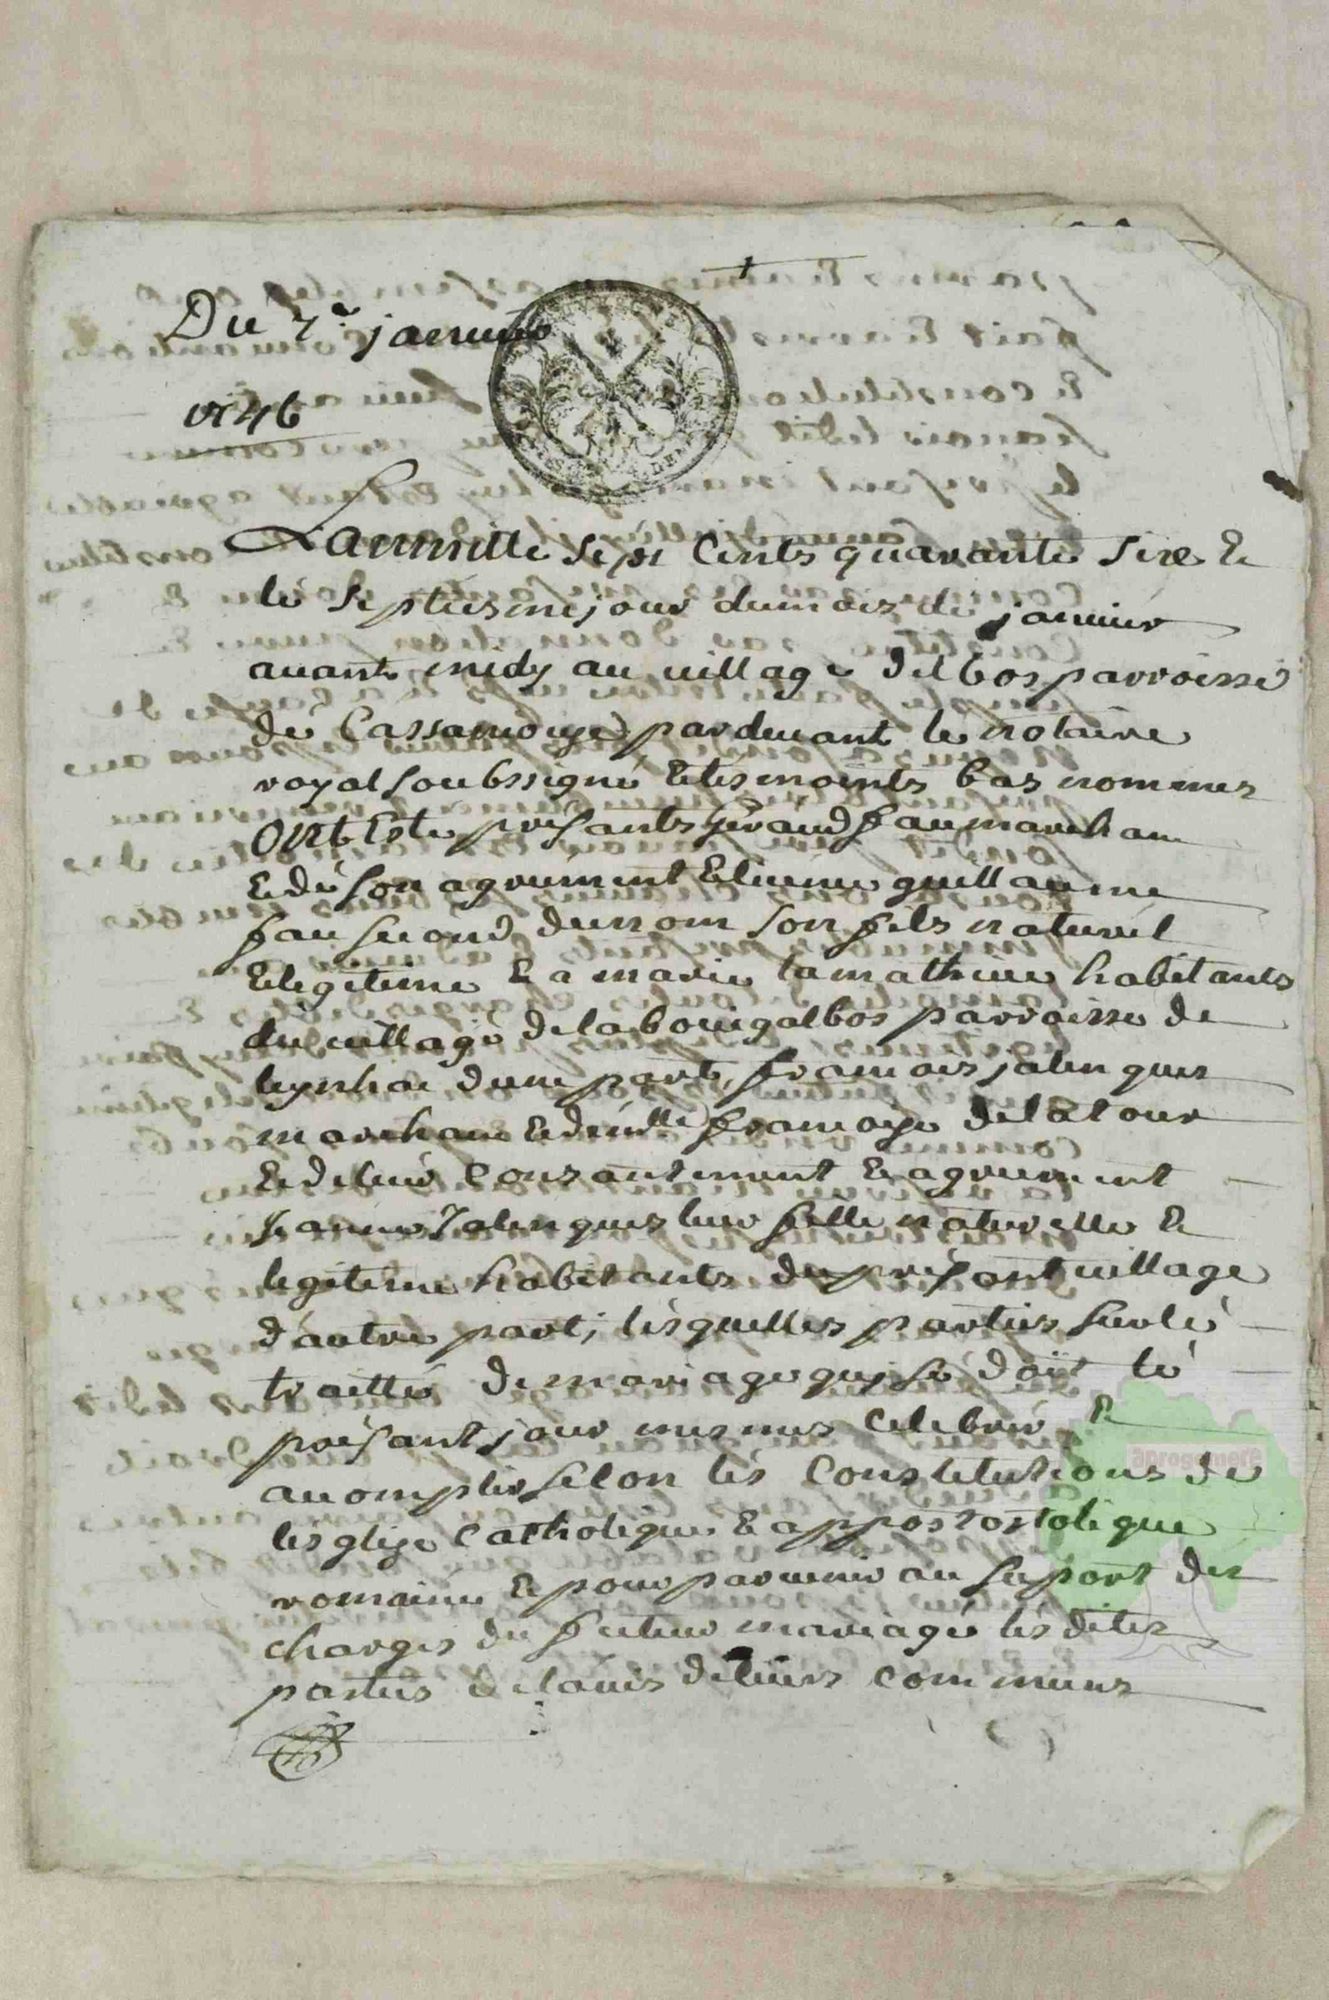 Du 7e janvier
1746
L'an mille sept cents quarante sixe &
le septiesme jour du mois de janvier
avant midy au village del bos parroisse
de Cassanouze pardevant le notaire
royal soubssigné & tesmoints bas nommes
ont este présants Géraud fau marchan
& de son agrément Etienne guillaume
fau second du nom son fils naturel
& legitime & a marie lamathieu habitants
du village de la bouigalbos parroisse de
leynhac d'une part, francois jalenques
marchan & delle francoize delatour
& de leur consantement & agreement
jeanne jalenques leur fille naturelle &
legitime habitants du présant village
d'autre part, lesquelles parties sur le
traitté de mariage quy se doit le
présant jour mesmes celebrer &
acomplir selon les constitutions de
lesglize catholique & appostostolique
romaine & pour parvenir au suport des
charges du futur mariage les dites
parties de lavis de leurs communs
aprogemere